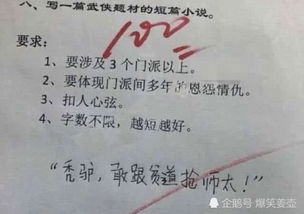 八、写一篇武侠题材的短篇小说。
100
要求:
1、要涉及3个门派以上。
2、要体现门派间多年的恩怨情仇。
3、扣人心弦。
4、字数不限,越短越好。
“秃驴,敢跟贫道抢师太!”
企鹅号 爆笑姜壶